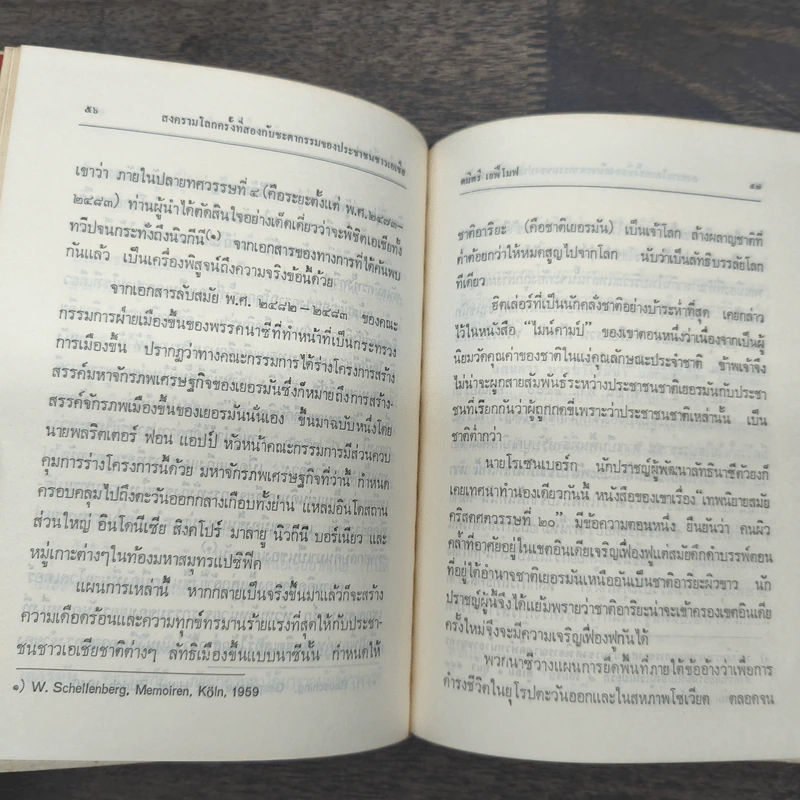 ๕๖
สงครามโลกครั้งที่สองกับชะตากรรมของประชาชนชาวเอเชีย
เขาว่า ภายในปลายทศวรรษที่ ๔ (คือระยะตั้งแต่ พ.ศ. ๒๔๗๓-
๒๔๘๓) ท่านผู้นำได้ตัดสินใจอย่างเด็ดเดี่ยวว่าจะพิชิตเอเชียทั้ง
ทวีปจนกระทั่งถึงนิวกีนี(๑) จากเอกสารของทางการที่ได้ค้นพบ
กันแล้ว เป็นเครื่องพิสูจน์ถึงความจริงข้อนี้ด้วย
จากเอกสารลับสมัย พ.ศ. ๒๔๘๒ – ๒๔๘๓ ของคณะ
กรรมการฝ่ายเมืองขึ้นของพรรคนาซีที่ทำหน้าที่เป็นกระทรวง
การเมืองขึ้น ปรากฏว่าทางคณะกรรมการได้ร่างโครงการสร้าง
สรรค์มหาจักรภพเศรษฐกิจของเยอรมันซึ่งก็หมายถึงการสร้าง-
สรรค์จักรภพเมืองขึ้นของเยอรมันนั่นเอง ขึ้นมาฉบับหนึ่งโดย
นายพลริตเตอร์ ฟอน แอปป์ หัวหน้าคณะกรรมการมีส่วนควบ
คุมการร่างโครงการนี้ด้วย มหาจักรภพเศรษฐกิจที่ว่านี้ กำหนด
ครอบคลุมไปถึงตะวันออกกลางเกือบทั้งย่าน แหลมอินโดสถาน
ส่วนใหญ่ อินโดนีเซีย สิงคโปร์ มาลายู นิวกีนี บอร์เนียว และ
หมู่เกาะต่างๆในท้องมหาสมุทรแปซิฟิค
แผนการเหล่านี้ หากกลายเป็นจริงขึ้นมาแล้วก็จะสร้าง
ความเดือดร้อนและความทุกข์ทรมานร้ายแรงที่สุดให้กับประชา-
ชนชาวเอเชียชาติต่างๆ ลัทธิเมืองขึ้นแบบนาซีนั้น กำหนดให้
๑) W. Schellenberg, Memoiren, Köln, 1959
ดมีตรี เยฟีโมฟ
๕๗
ชาติอาริยะ (คือชาติเยอรมัน) เป็นเจ้าโลก ล้างผลาญชาติที่
ต่ำต้อยกว่าให้หมดสูญไปจากโลก นับว่าเป็นลัทธิบรรลัยโลก
ทีเดียว
ฮิตเล่อร์ที่เป็นนักคลั่งชาติอย่างบ้าระห่ำที่สุด เคยกล่าว
ไว้ในหนังสือ “ไมน์คามป์” ของเขาตอนหนึ่งว่าเนื่องจากเป็นผู้
นิยมวัดคุณค่าของชาติในแง่คุณลักษณะประจำชาติ ข้าพเจ้าจึง
ไม่น่าจะผูกสายสัมพันธ์ระหว่างประชาชนชาติเยอรมันกับประชา
ชนที่เรียกกันว่าผู้ถูกกดขี่เพราะว่าประชาชนชาติเหล่านั้น เป็น
ชาติต่ำกว่า
นายโรเซนเบอร์ก นักปราชญ์ผู้พัฒนาลัทธินาซีตัวยงก็
เคยเทศนาทำนองเดียวกันนี้ หนังสือของเขาเรื่อง “เทพนิยายสมัย
คริสตศตวรรษที่ ๒๐” มีข้อความตอนหนึ่ง ยืนยันว่า คนผิว
คล้ำที่อาศัยอยู่ในเขตอินเดียเจริญเฟื่องฟูแต่สมัยดึกดำบรรพ์ตอน
ที่อยู่ใต้อำนาจชาติเยอรมันเหนืออันเป็นชาติอาริยะผิวขาว นัก
ปราชญ์ผู้นี้จึงได้แย้มพรายว่าชาติอาริยะน่าจะเข้าครองเขตอินเดีย
ครั้งใหม่จึงจะมีความเจริญเฟื่องฟูกันได้
พวกนาซีวางแผนการยึดพื้นที่ภายใต้ข้ออ้างว่าเพื่อการ
ดำรงชีวิตในยุโรปตะวันออกและในสหภาพโซเวียต ตลอดจน